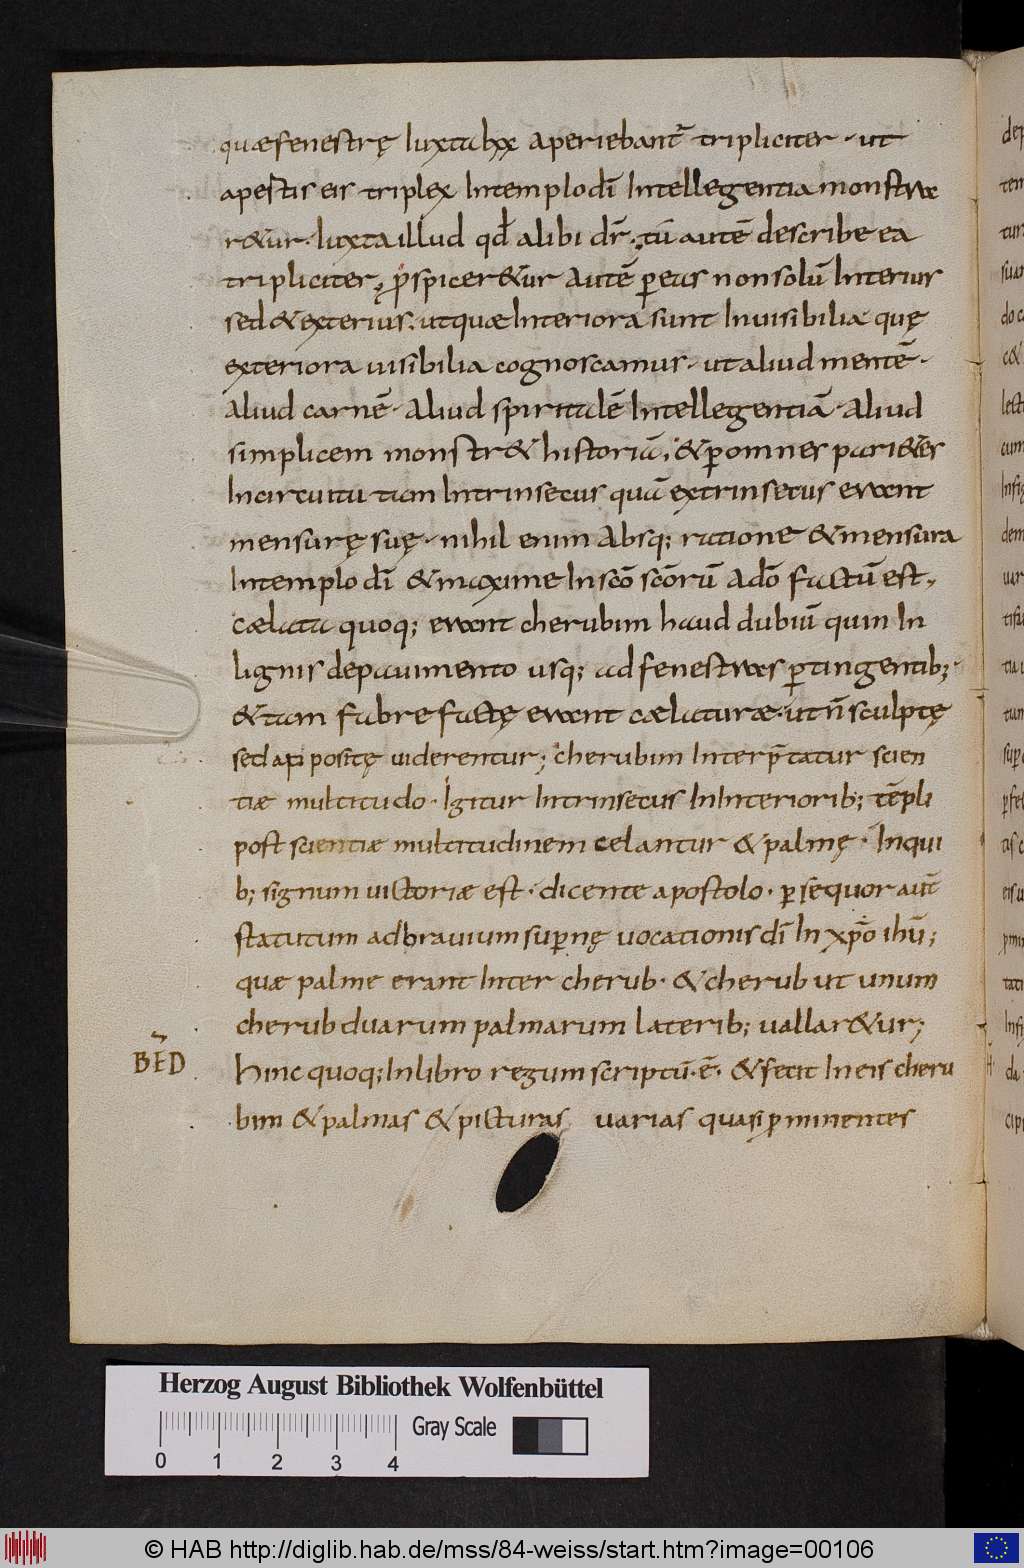 quæ fenestrę Iuxta lxx aperiebant̄ tripliciter · ut
apertis eis triplex In templo dī Intellegentia monstra
r&ur · Iuxta illud qd̄ alibi dr̄ · tū autē describe ea
tripliciter, p̄spicer&ur autē p̱ eas non solū Interius
sed & exterius. ut quæ Interiora sunt Inuisibilia quę
exteriora uisibilia cognoscamus · ut aliud mentē ·
aliud carnē · aliud spiritalē Intellegentiā · aliud
simplicem monstr& historiā, & p̱ omnes pari&es
In circuitu tam Intrinsecus quā extrinsecus erant
mensurę suę · nihil enim absq; ratione & mensura
In templo dī & maxime In scō scōrū a dō factū est,
cælata quoq; erant cherubim haud dubiū quin In
lignis de pauimento usq; ad fenestras p̱tingentib; ·
& tam fabre factę erant cælaturæ · ut n̄ sculptę
sed appositę uiderentur; cherubim Interp̄tatur scien
tiæ multitudo · Igitur Intrinsecus In Interiorib; tēpli
post scientiæ multitudinem celantur & palmę · In qui
b; signum uictoriæ est · dicente apostolo · p̱sequor aut̄
statutum ad brauium sup̱nę uocationis dī In xp̄o ihū;
quæ palme erant Inter cherub · & cherub ut unum
cherub duarum palmarum laterib; uallar&ur;
BĒD
hinc quoq; In libro regum scriptū · ē · & fecit In eis cheru
bim & palmas & picturas uarias quasi p̱minentes
Herzog August Bibliothek Wolfenbüttel
Gray Scale
0 1 2 3 4
© HAB http://diglib.hab.de/mss/84-weiss/start.htm?image=00106